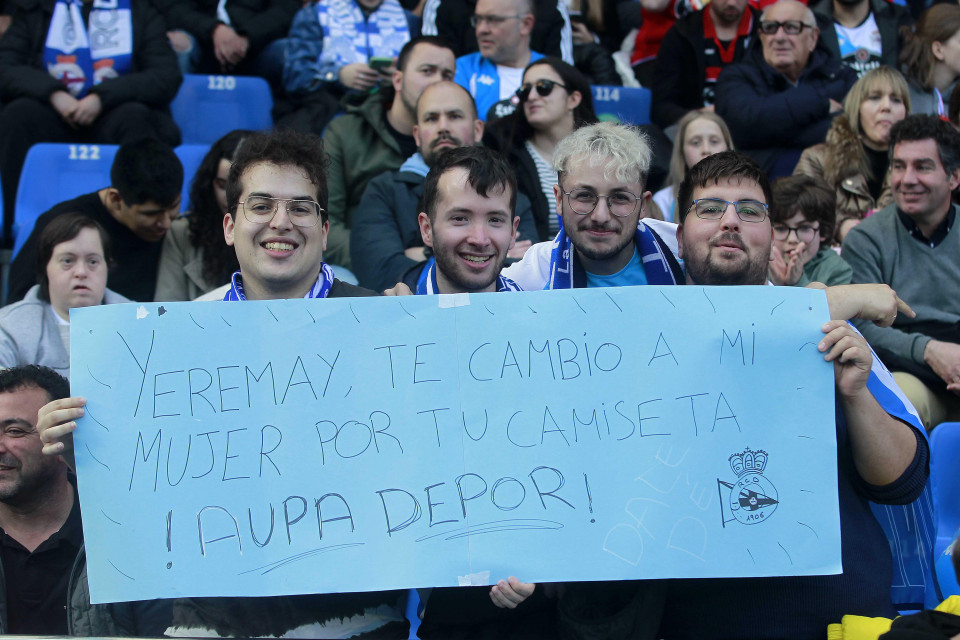 120
114
122
YEREMAY, TE CAMBIO A MI
MUJER POR TU CAMISETA
¡AUPA DEPOR!
RCD
1906